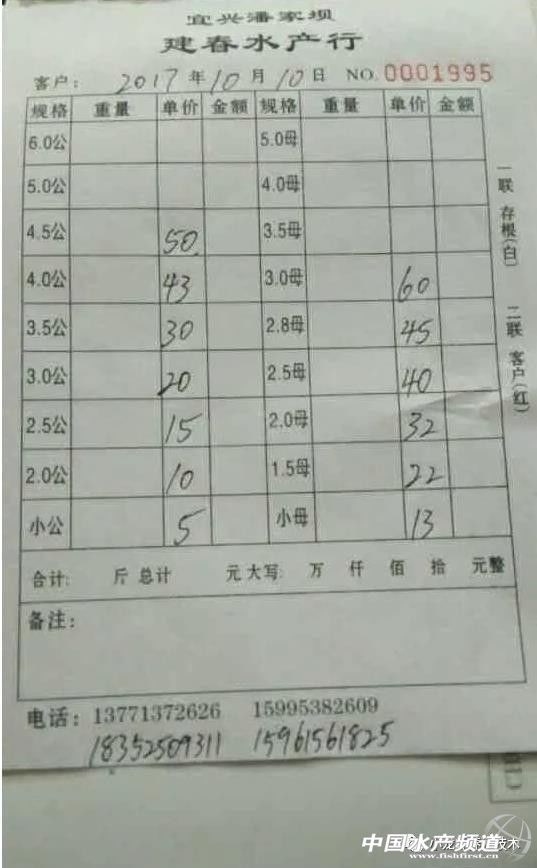 宜兴潘家坝
建春水产行
客户: 2017 年 10 月 10 日 NO. 0001995
规格 重量 单价 金额 规格 重量 单价 金额
6.0公 5.0母
5.0公 4.0母
4.5公 50 3.5母
4.0公 43 3.0母 60
3.5公 30 2.8母 45
3.0公 20 2.5母 40
2.5公 15 2.0母 32
2.0公 10 1.5母 22
小公 5 小母 13
合计: 斤 总计 元 大写: 万 仟 佰 拾 元整
备注:
电话: 13771372626 15995382609
18352509311 15961561825
一联 存根(白)
二联 客户(红)
中国水产频道
www.fishfirst.cn
技术